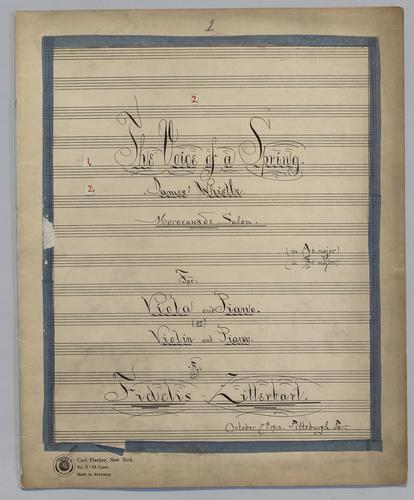 1
2.
1. The Voice of a Spring.
2. James' Whistle.
Morceaux de Salon.
(in As major)
For.
Viola and Piano.
(or)
Violin and Piano.
By
Fidelis Zitterbart.
October 7th 1910. Pittsburgh Pa.
Carl Fischer, New York.
No. 5 - 14 lines.
Made in Germany